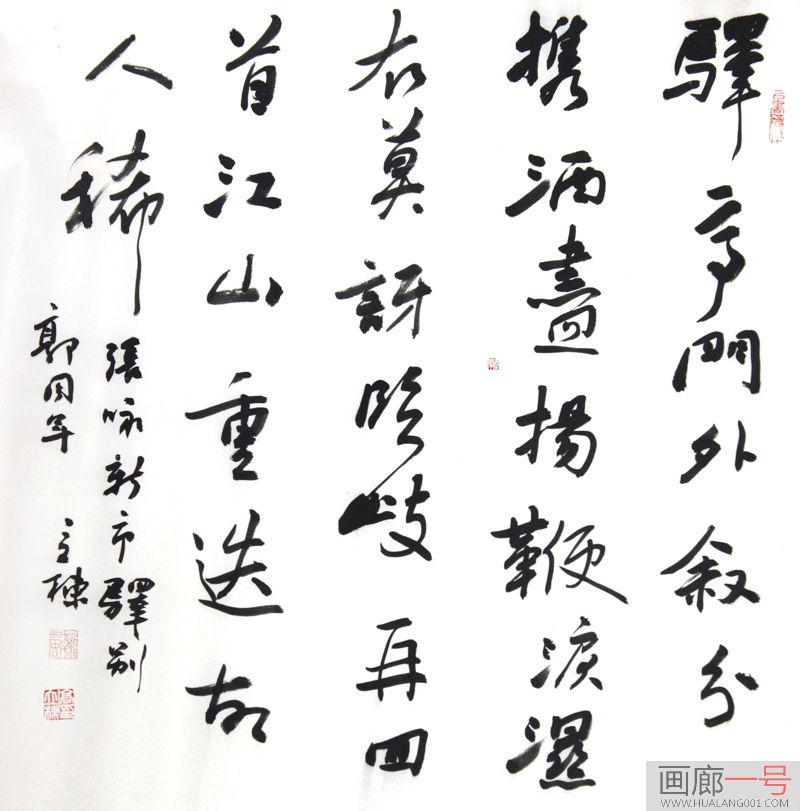 驛亭門外叙分
携酒盡揚鞭淚濕
衣莫訝临歧再回
首江山重迭故
人稀
張咏新市驛别
郭同年
画廊一号
WWW.HUALANG001.COM